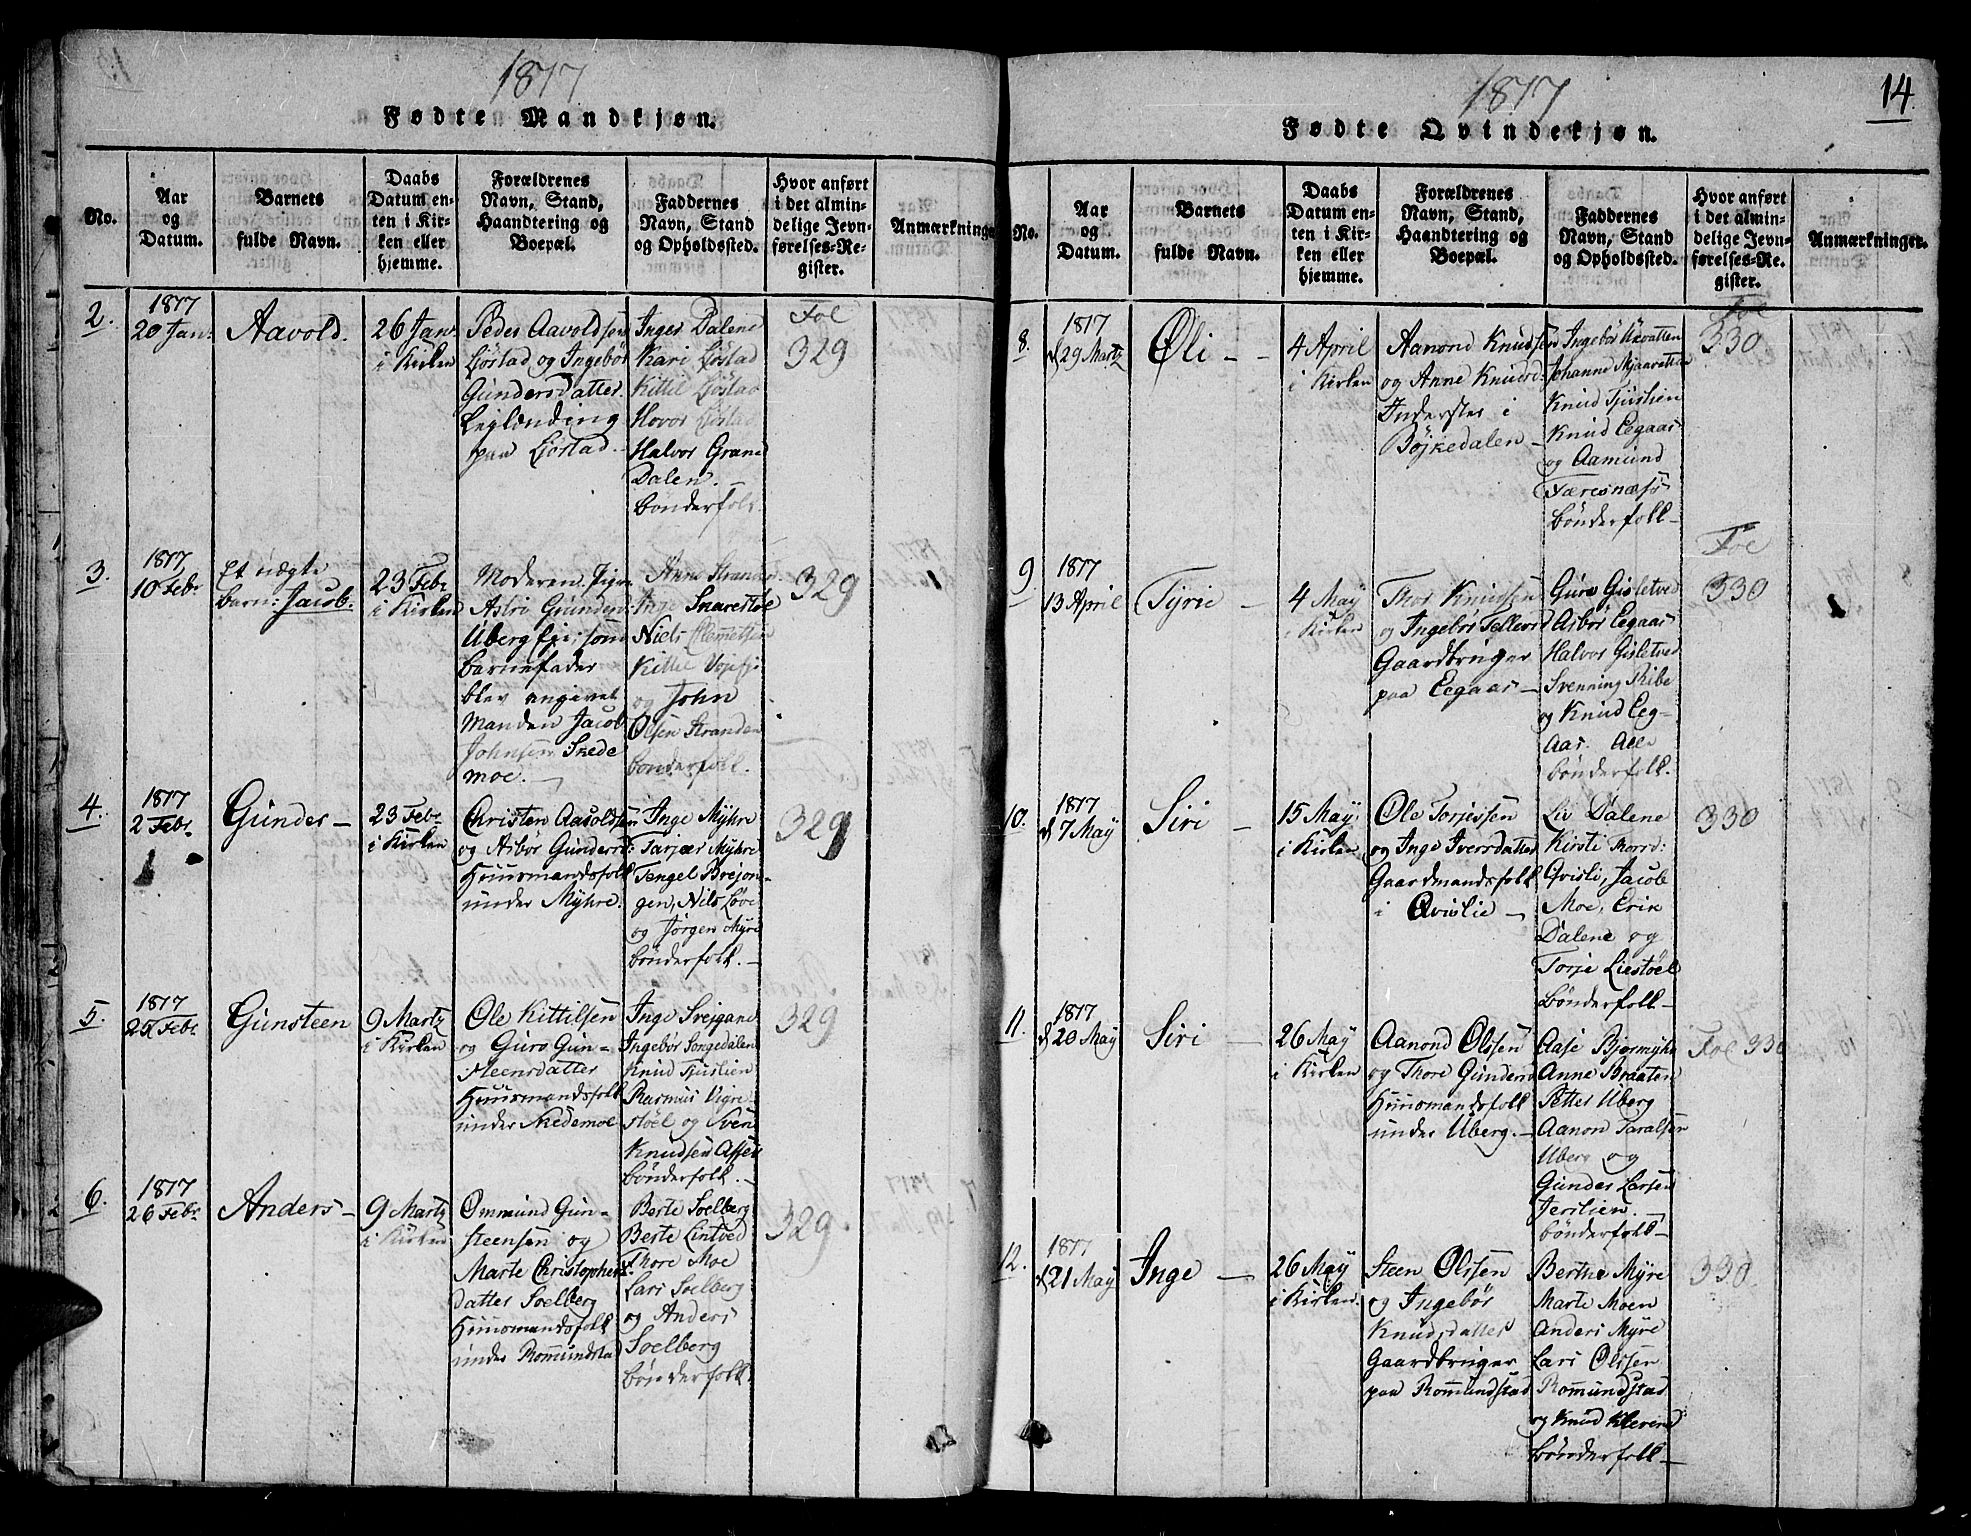 1817
Fødte Mandkjøn.
No.
Aar
og
Datum.
Barnets
fulde Navn.
Daabs
Datum en-
ten i Kir-
ken eller
hjemme.
Forældrenes
Navn, Stand,
Haandtering og
Boepæl.
Faddernes
Navn, Stand
og Opholdssted.
Hvor anført
i det almin-
delige Jevn-
førelses-Re-
gister.
Anmærkninger
2.
1817
20 Jan:
Aavold.
26 Jan:
i Kirken
Peder Aavoldsen
Ljøstad og Ingebør
Gundersdatter
Leylænding
paa Ljøstad.
Inger Dalene
Kari Ljøstad
Kittil Ljøstad
Hovor Ljøstad
Halvor Grane
Dalen. –
bønderfolk.
Fol
329
3.
1817
10 Febr
Et uægte
barn: Jacob.
23 Febr
i Kirken
Moderen Pigen
Astri Gunders
Uberg
barnefader
blev angivet
Manden Jacob
Johnsen Skede
moe. –
Anne Strand
Inge Snarestøl
Niels Clemetsen
Kittil
og John
Olsen Stranden
bønderfolk.
329
4.
1817
2 Febr.
Gunder –
23 Febr
i Kirken
Christen Aavoldsen
og Asbør Gundersd:
Huusmandsfolk
under Myhre.
Inge Myhre
Tarjær Myhre
Tengel Brejon-
gen, Nils Løve
og Jørgen Myre
bønderfolk. –
329
5.
1817
25 Febr.
Gunsteen
9 Martz
i Kirken
Ole Kittilsen
og Guro Gun-
steensdatter
Huusmandsfolk
under Skedemoe
Inge Svejgane
Ingebør Songedalen
Knud Tjuslien
Rasmus Vigre
støel og Sven
Knudsen Assen
bønderfolk. –
329
6.
1817
26 Febr.
Anders –
9 Martz
i Kirken
Ommund Gun-
steensen og
Marte Christophers
datter Soelberg
Huusmandsfolk
under Rommundstad
Berte Soelberg
Berte Lintved
Thore Moe
Lars Soelberg
og Anders
Soelberg
bønderfolk.
329.
1817
14
Fødte Qvindekjøn.
No.
Aar
og
Datum.
Barnets
fulde Navn.
Daabs
Datum en-
ten i Kir-
ken eller
hjemme.
Forældrenes
Navn, Stand,
Haandtering og
Boepæl.
Faddernes
Navn, Stand
og Opholdssted.
Hvor anført
i det almin-
delige Jevn-
førelses-Re-
gister.
Anmærkninger.
8.
1817
d 29 Martz
Øli –
4 April
i Kirken
Aanond Knudsen
og Anne Knudsd:
Inderster i
Bøjkedalen –
Ingebør Uvatten
Johanne Mjaavatten
Knud Tjuslien
Knud Eegaas
og Aamund
Færesnæs
bønderfolk –
Fol
330
9
1817
13 April
Tyrie –
4 May
i Kirken
Thor Knudsen
og Ingebør Tellevsd
Gaardbruger
paa Eegaas –
Guro Gisletved
Asbør Eegaas
Halvor Gisletved
Svenning Ribe
og Knud Eeg-
Aas. Alle
bønderfolk.
Fol
330
10.
1817
d 7 May
Siri –
15 May
i Kirken
Ole Torjessen
og Inge Iversdatter
Gaardmandsfolk
i Qvislie –
Liv Dalene
Kirsti Thorsd:
Qvisli, Jacob
Moe, Erik
Dalene og
Torje Liestøel
bønderfolk –
330
11.
1817
d 20 May
Siri –
26 May
i Kirken
Aanond Olssen
og Thore Gundersd
Huusmandsfolk
under Uberg. –
Aase Bjørmyhr
Anne Braaten
Petter Uberg
Aanon Taralsen
Uberg og
Gunder Larsen
Jerslien. –
bønderfolk –
Fol 330
12.
1817
d 21 May
Inge –
26 May
i Kirken.
Steen Olssen
og Ingebør
Knudsdatter
Gaardbruger
paa Rommundstad
Berthe Myre
Marte Moen
Anders Myre
Lars Olssen
Rommundstad
og Knud Kleveng
bønderfolk –
330.